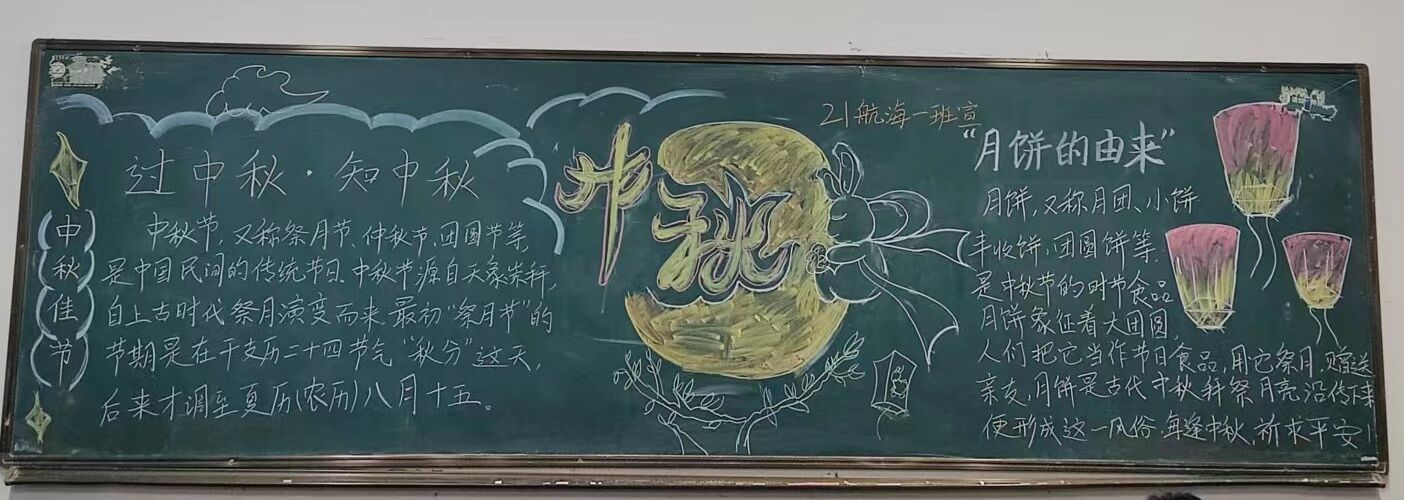 中秋佳节
过中秋·知中秋
中秋节,又称祭月节、仲秋节、团圆节等,
是中国民间的传统节日。中秋节源自天象崇拜,
自上古时代祭月演变而来。最初“祭月节”的
节期是在干支历二十四节气“秋分”这天,
后来才调至夏历(农历)八月十五。
中秋
21航海一班宣
“月饼的由来”
月饼,又称月团、小饼
丰收饼,团圆饼等.
是中秋节的时节食品
月饼象征着大团圆,
人们把它当作节日食品,用它祭月,赠送
亲友,月饼是古代中秋祭月亮沿传下来
便形成这一风俗.每逢中秋,祈求平安!